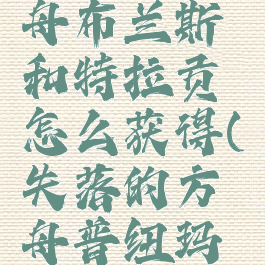 舟布兰斯
和特拉贡
怎么获得(
失落的方
舟普纽玛